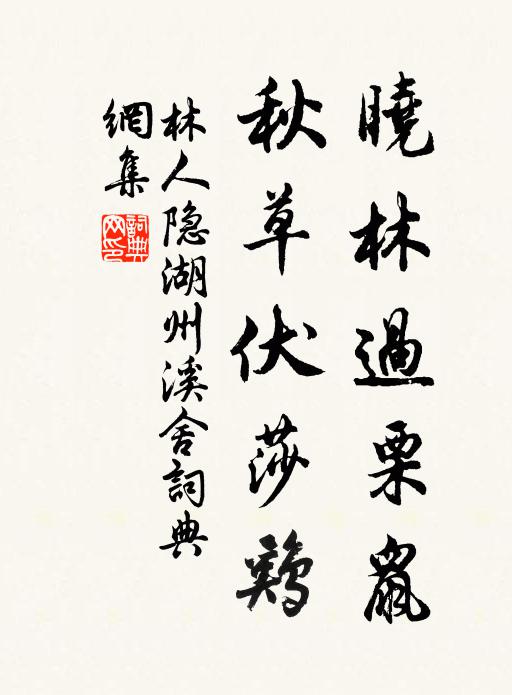 曉林過栗鼠
秋草伏莎鷄
林人隐湖州溪舍詞典
網集
詞典網印